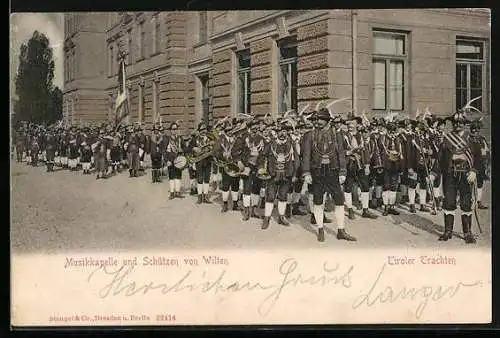 Musikkapelle und Schützen von Wilten
Tiroler Trachten
Herzlichen Gruß
Langer
Stengel & Co., Dresden u. Berlin 22414